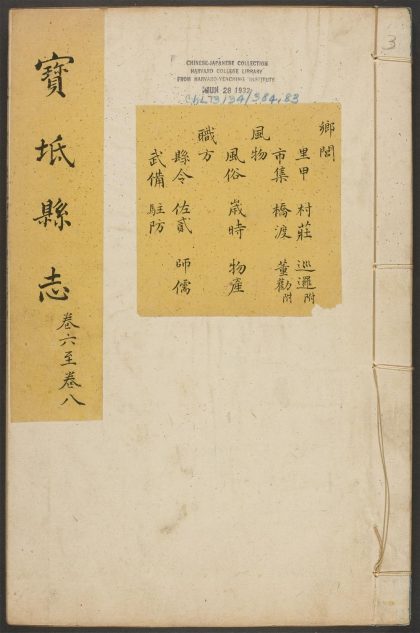 寶坻縣志 卷六至卷八
鄉閭
里甲 村莊 巡邏附
市集 橋渡 董勸附
風物
風俗 歲時 物產
職方
縣令 佐貳 師儒
武備 駐防
CHINESE-JAPANESE COLLECTION
HARVARD COLLEGE LIBRARY
FROM HARVARD-YENCHING INSTITUTE
JUN 28 1932
3